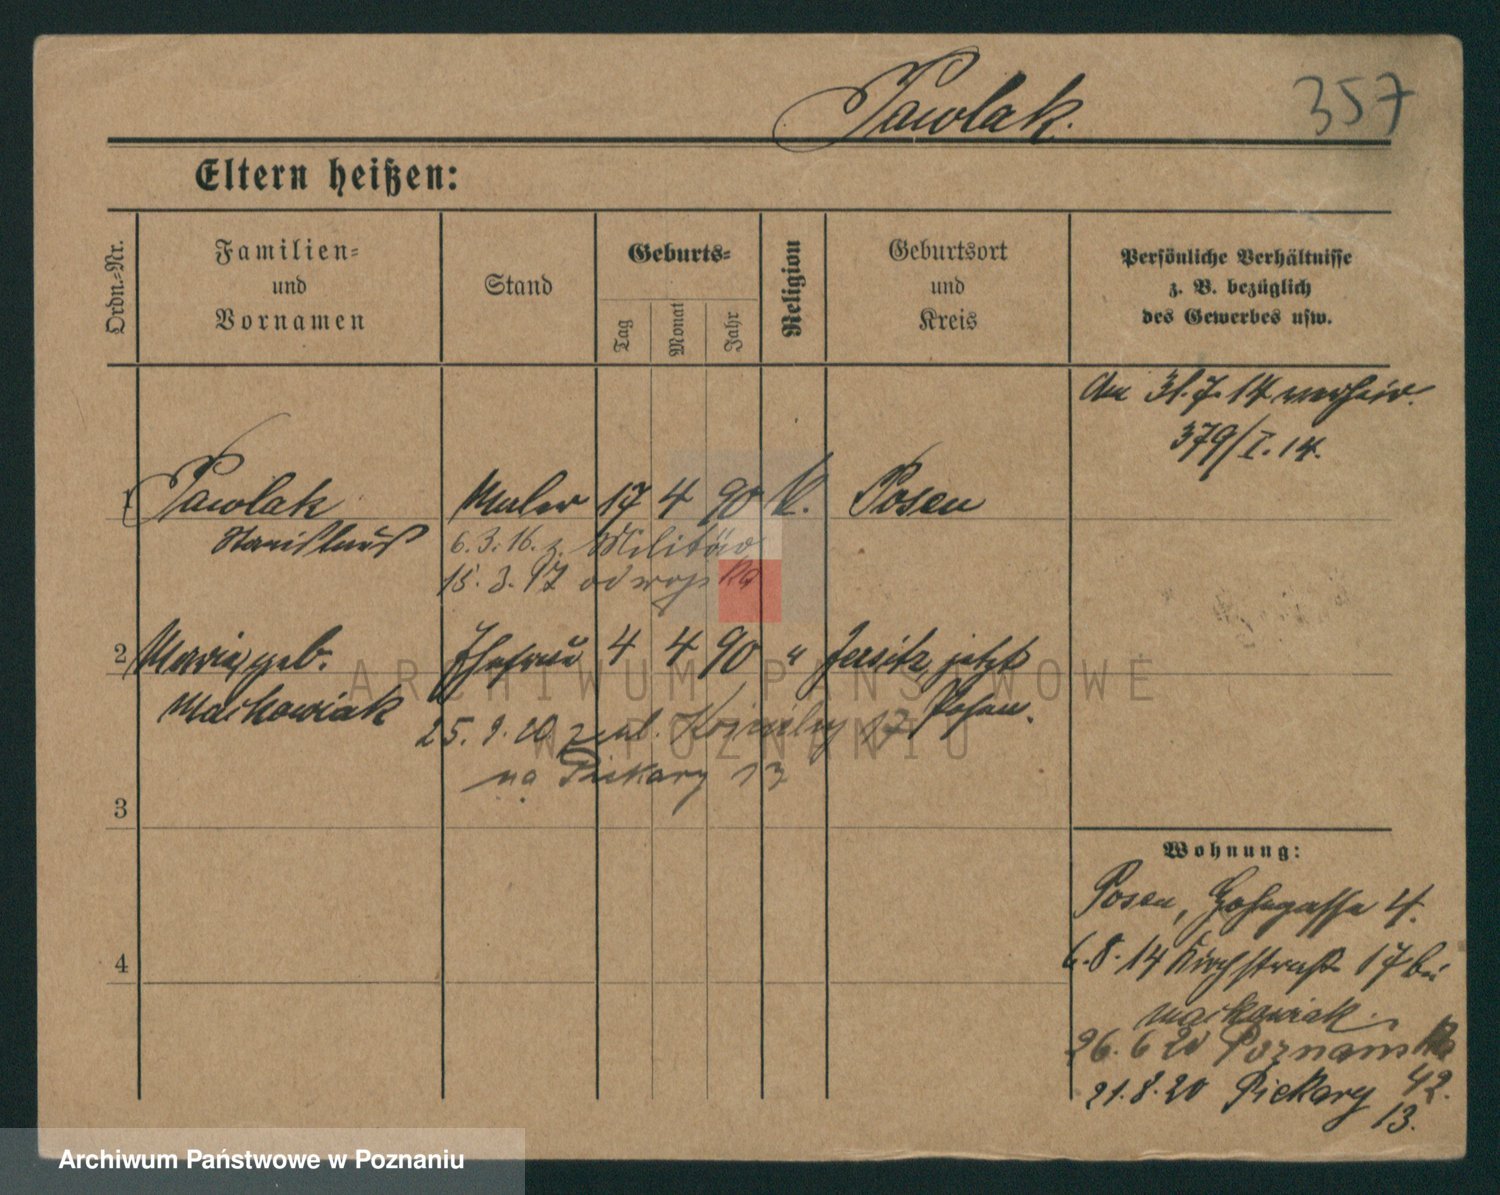 Pawlak.
357
Eltern heißen:
Ordn.=Nr.
Familien=
und
Vornamen
Stand
Geburts=
Tag
Monat
Jahr
Religion
Geburtsort
und
Kreis
Persönliche Verhältnisse
z. B. bezüglich
des Gewerbes usw.
Am 31.7.14 verheir.
379/I.14.
1 Pawlak Maler 17 4 90 K. Posen
Stanislaus
6.3.16. z. Militär
15.3.17 od wojska
2 Maria, geb. Ehefrau 4 4 90 " Jersitz, jetzt
Maćkowiak Posen.
25.9.20 z ul. 17
na Piekary 13
3
4
Wohnung:
Posen, 4.
6.8.14 Kirchstraße 17 bei
Maćkowiak.
26.6 20 Poznańska
42.
21.8.20 Piekary
13.
ARCHIWUM PAŃSTWOWE
W POZNANIU
Archiwum Państwowe w Poznaniu